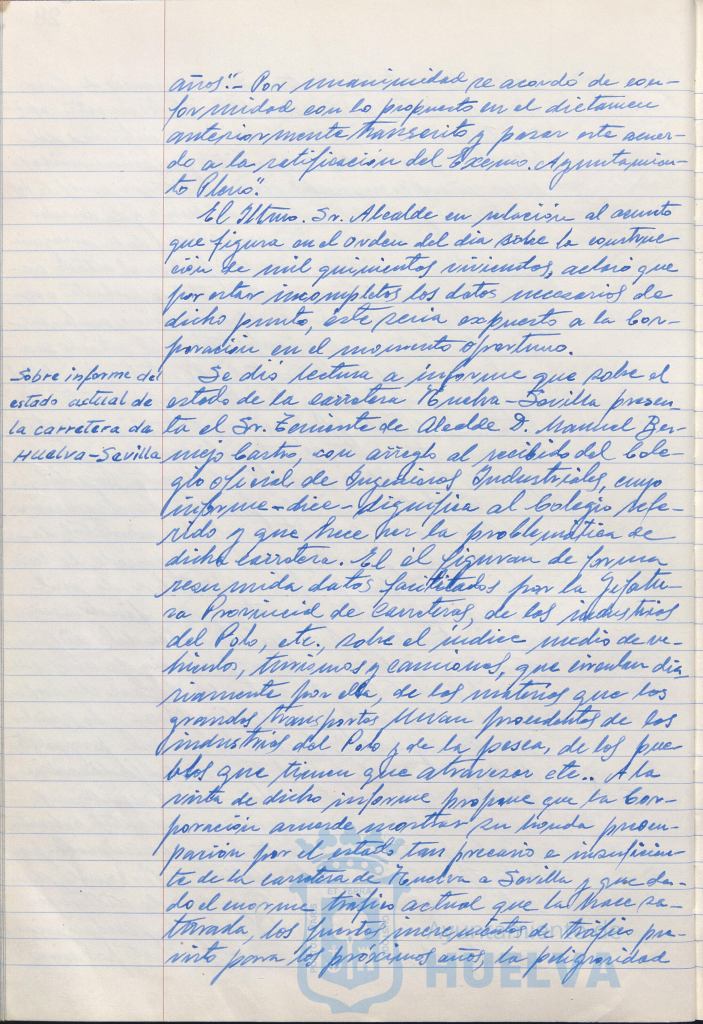 años".- Por unanimidad se acordó de con-
formidad con lo propuesto en el dictamen
anteriormente transcrito y pasar este acuer-
do a la ratificación del Excmo. Ayuntamien-
to Pleno".
El Iltmo. Sr. Alcalde en relación al asunto
que figura en el orden del dia sobre la construc-
ción de mil quinientas viviendas, aclaró que
por estar incompletos los datos necesarios de
dicho punto, éste seria expuesto a la Cor-
poración en el momento oportuno.
Sobre informe del
estado actual de
la carretera de
Huelva-Sevilla
Se dió lectura a informe que sobre el
estado de la carretera Huelva-Sevilla presen-
ta el Sr. Teniente de Alcalde D. Manuel Ber-
mejo Castro, con arreglo al recibido del Cole-
gio oficial de Ingenieros Industriales, cuyo
informe-dice-dignifica al Colegio refe-
rido y que hace ver la problemática de
dicha carretera. El él figuran de forma
resumida datos facilitados por la Jefatu-
ra Provincial de Carreteras, de las industrias
del Polo, etc., sobre el indice medio de ve-
hiculos, turismos y camiones, que circulan dia
riamente por ella, de las materias que los
grandes transportes llevan procedentes de las
industrias del Polo y de la pesca, de los pue-
blos que tienen que atravesar etc.. A la
vista de dicho informe propone que la Cor-
poración acuerde mostrar su honda preocu-
pación por el estado tan precario e insuficien-
te de la carretera de Huelva a Sevilla y que da-
do el enorme tráfico actual que la hace sa-
turada, los fuertes incrementos de tráfico pre-
visto para los próximos años, la peligrosidad
Ayuntamiento
HUELVA